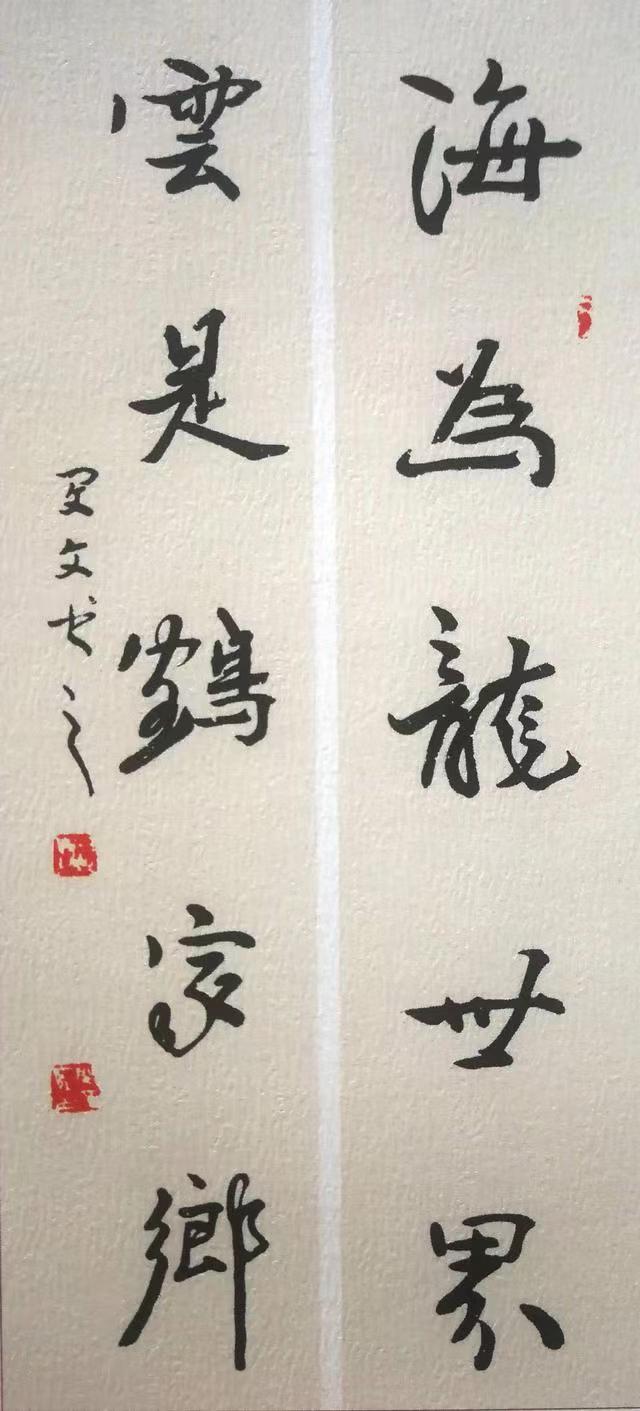 海為龍世界
雲是鶴家鄉
文书之